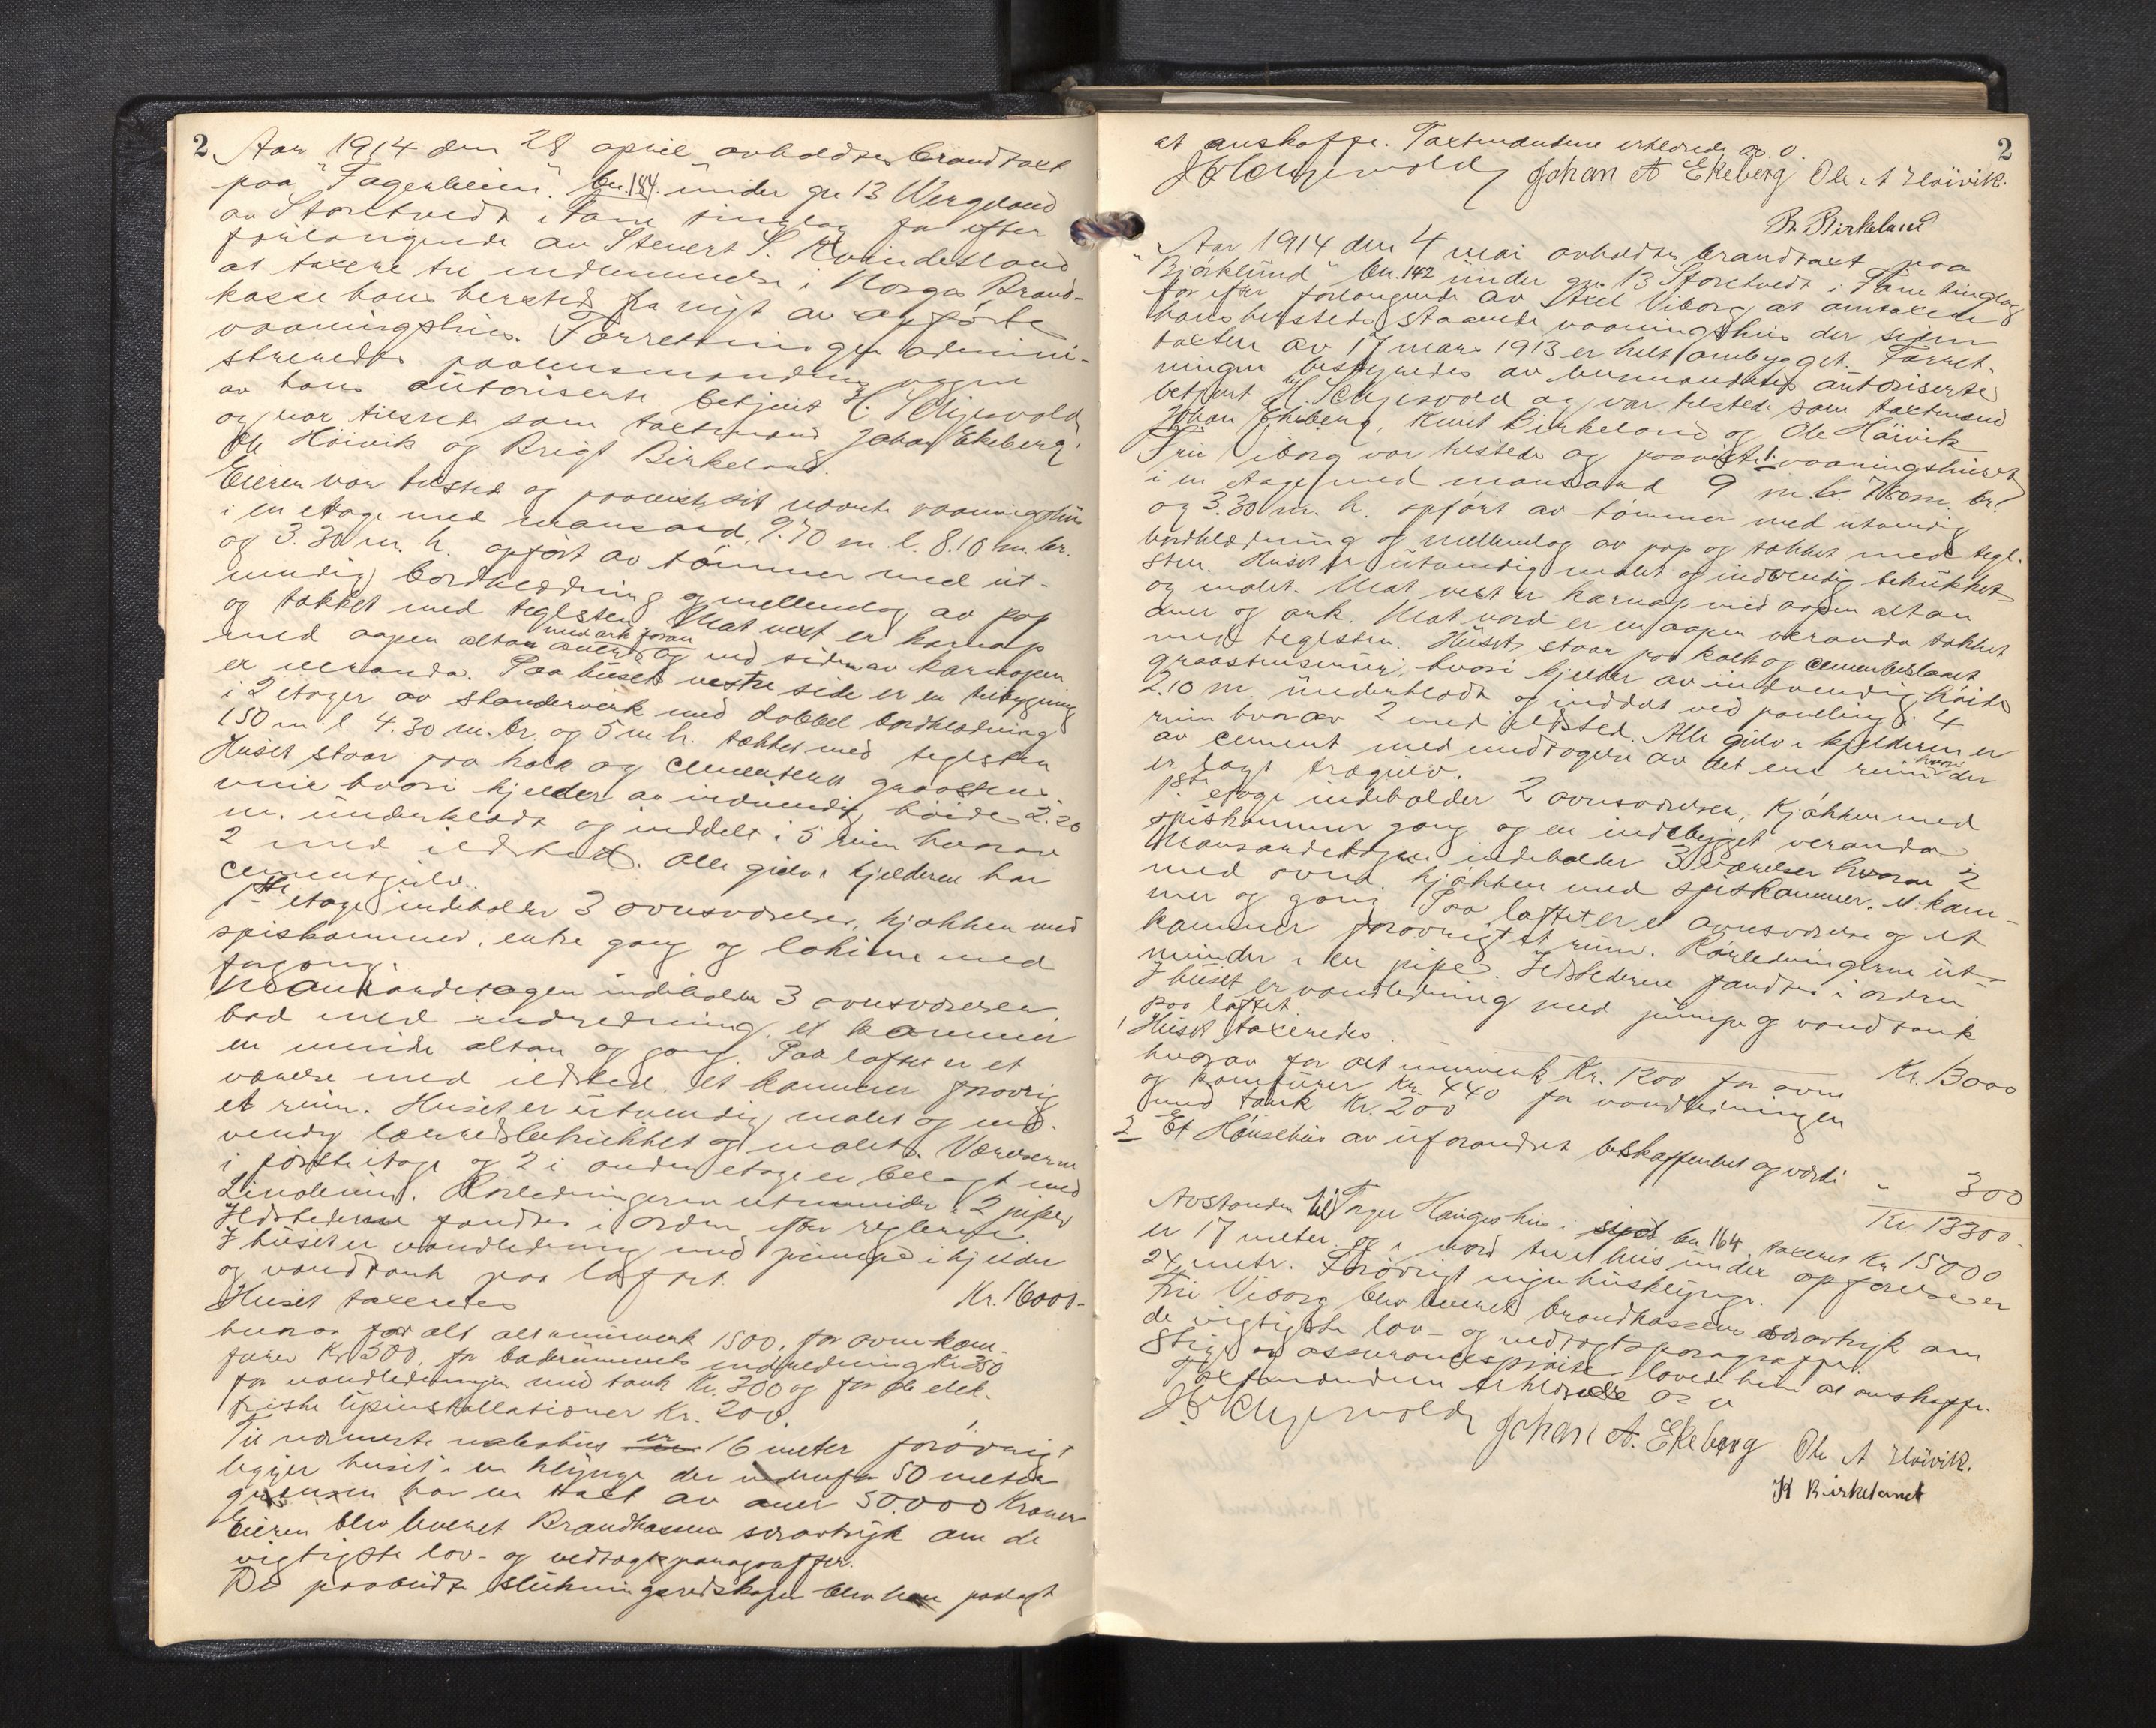 2
Aar 1914 den 28 april avholdtes brandtaxt
paa "Fagerheim" bn. 184 under gr 13 Wergeland
av Storetvedt i Fane tinglag for efter
forlangende av Stenert S. Kvindesland
at taxere til indlemmelse i Norges Brand-
kasse hans hersteds fra nyt av opförte
vaaningshus. Forretningen admini-
streredes paa lensmandens vegne
av hans autoriserte betjent H. Schjervold
og var tilstede som taxtmænd Johan Ekeberg,
Ole Hövik og Brigt Birkeland.
Eieren var tilstede og paaviste sit nævnte vaaningshus
i en etage med mansard, 9.70 m. l. 8.10 m. br.
og 3.30 m. h. opfört av tömmer med ut-
vendig bordklædning og mellemlag av pap
og tækket med teglsten. Mot vest er karnap
med aapen altan over med ark foran og ved siden av karnappen
er veranda. Paa husets vestre side er en tilbygning
i 2 etager av standerverk med dobbel bordklædning
1.50 m. l. 4.30 m. br. og 5 m h. tækket med teglsten
Huset staar paa kalk og cementslaat graastens-
mur hvori kjelder av indvendig höide 2.20
m. underklædt og inddelt i 5 rum hvorav
2 med ildsted. Alle gulv i kjelderen har
cementgulv.
1ste etage indeholder 3 ovnsværelser, kjökken med
spiskammer, entre gang og lokime med
forgang.
Mansardetagen indeholder 3 ovnsværelser,
bad med indredning, et kammer
en mindre altan og gang. Paa loftet er et
værelse med ildsted, et kammer forövrig
et rum. Huset er utvendig malet og ind-
vendig lærredsbetrukket og malet. Værelserne
i förste etage og 2 i anden etage er belagt med
Linoleum. Rörledningerne utmunder i 2 piper
Ildstederne fandtes i orden efter reglerne
I huset er vandledning med pumpe i kjelder
og vandtank paa loftet.
Huset taxeredes Kr. 16000-
hvorav for alt murverk 1500, for ovne kom-
furer Kr 500, for baderummets indredning Kr 350
for vandledningen med tank Kr. 300 og for de elek-
triske lysinstallationer Kr. 200.
Til nærmeste nabohus er 16 meter forövrigt
ligger huset i en klynge der indenfor 50 meter
grænsen har en taxt av over 50.000 Kroner
Eieren blev leveret Brandkassens særavtryk om de
vigtigste lov- og vedtægtsparagraffer.
De paabudte slukningsredskaper blev han paalagt
2
at anskaffe. Taxtmændene erklærede o. v.
H Schjervold Johan A Ekeberg Ole A Hövik.
B. Birkeland
Aar 1914 den 4 mai avholdtes brandtaxt paa
"Björklund" bn. 142 under gr. 13 Storetvedt i Fane tinglag
for efter forlangende av Axel Viborg at omtaxere
hans hersteds staaende vaaningshus der siden
taxten av 17 mars 1913 er helt ombygget. Forret-
ningen bestyredes av lensmandens autoriserte
betjent H. Schjervold og var tilstede som taxtmænd
Johan Ekeberg, Knut Birkeland og Ole Hövik
Fru Viborg var tilstede og paaviste 1. vaaningshuset
i en etage med mansard 9 m. l. 7.80 m. br.
og 3.30 m. h. opfört av tömmer med utvendig
bordklædning og mellemlag av pap og tækket med tegl-
sten. Huset er utvendig malet og indvendig betrukket
og malet. Mot vest er karnap med aapen altan
over og ark. Mot nord er en aapen veranda tækket
med teglsten. Huset staar paa kalk og cementslaat
graastensmur, hvori kjelder av indvendig höide
2.10 m. underklædt og inddelt ved paneling i 4
rum hvorav 2 med ildsted. Alle gulv i kjelderen er
av cement med undtagelse av det ene rum hvori der
er lagt trægulv.
1ste etage indeholder 2 ovnsværelser, Kjökken med
spiskammer gang og en indebygget veranda
Mansardetagen indeholder 3 værelser hvorav 2
med ovne, kjökken med spiskammer, et kam-
mer og gang. Paa loftet er et ovnsværelse og et
kammer forövrigt et rum. Rörledningerne ut-
munder i en pipe. Ildstederne fandtes i orden
I huset er vandledning med pumpe og vandtank
paa loftet.
1 Huset taxeredes Kr. 13000
hvorav for alt murverk Kr. 1200 for ovne
og komfurer Kr. 440 for vandledningen
med tank Kr. 200
2 Et Hönsehus av uforandret beskaffenhet og værdi " 300
Kr 13300-
Avstanden til Torger Hauges hus i syd bn 164, taxeret Kr. 15000
er 17 meter og i nord til et hus under opförelse er
24 meter. Forövrigt ingen husklynge.
Fru Viborg blev leveret brandkassens særavtryk om
de vigtigste lov- og vedtægtsparagraffer.
Stige og assurancespröite lovede hun at anskaffe.
Taxtmændene erklærede o. v
H Schjervold Johan A. Ekeberg Ole A Hövik.
K Birkeland